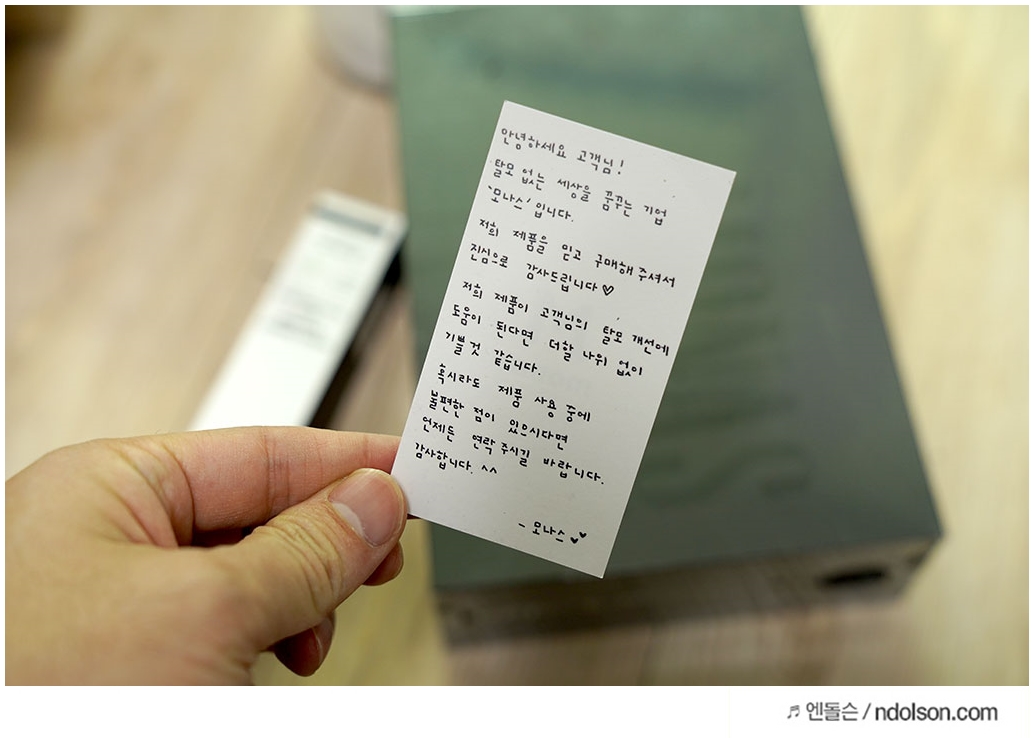 안녕하세요 고객님!
탈모 없는 세상을 꿈꾸는 기업
'모나스' 입니다.
저희 제품을 믿고 구매해 주셔서
진심으로 감사드립니다♡
저희 제품이 고객님의 탈모 개선에
도움이 된다면 더할 나위 없이
기쁠것 같습니다.
혹시라도 제품 사용 중에
불편한 점이 있으시다면
언제든 연락 주시길 바랍니다.
감사합니다. ^^
- 모나스 ♥♥
♬ 엔돌슨 / ndolson.com